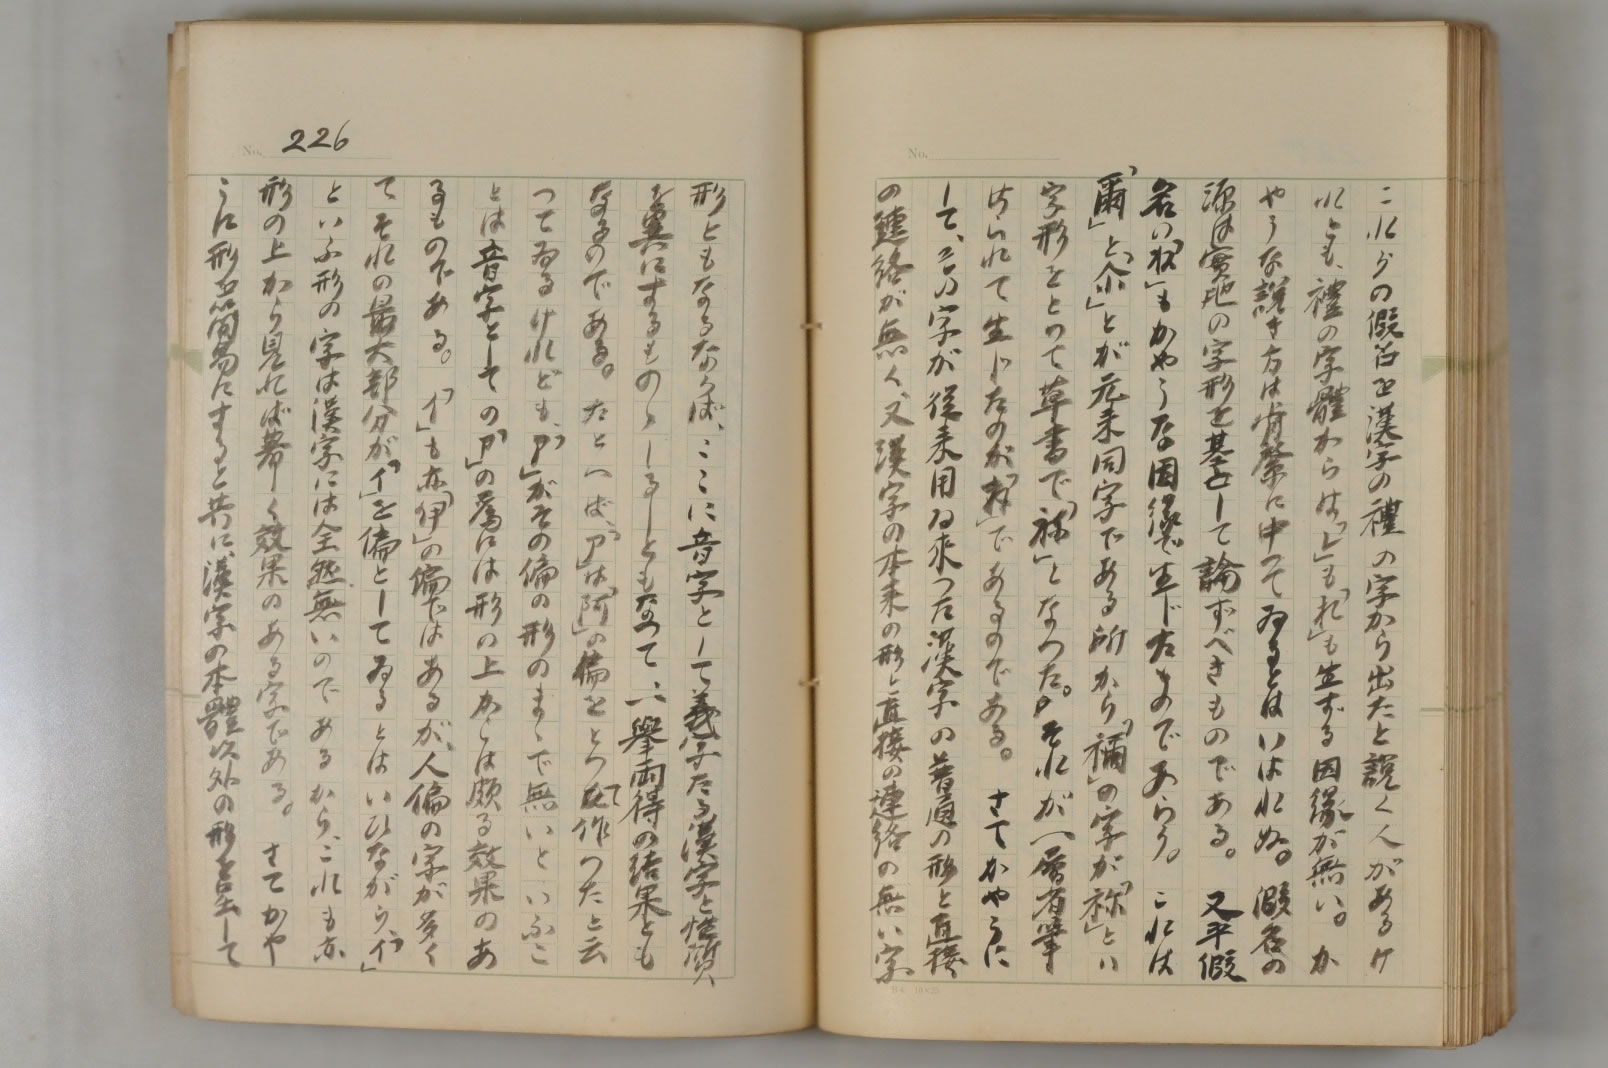 No.
これらの假名を漢字の禮の字から出たと説く人があるけ
れども、禮の字體からは「レ」も「れ」も生ずる因縁が無い。か
やうな説き方は肯綮に中つてゐるとはいはれぬ。假名の
源は實地の字形を基として論ずべきものである。又平假
名の「ね」もかやうな因縁で生じたものであらう。これは
「爾」と「尒」とが元来同字である所から「禰」の字が「祢」とい
字形をとつて草書で「祢」となつた。それが一層省筆
せられて生じたのが「ね」であるのである。さてかやうに
して、の字が從来用ゐ来つた漢字の普通の形と直接
の連絡が無く、又漢字の本来の形と直接の連絡の無い字
No. 226
形ともなるならば、ここに音字として義字たる漢字と性質
を異にするもののしるしともなつて、一擧両得の結果とも
なるのである。たとへば、「ア」は「阿」の偏をとつて作つたと云
つてゐるけれども、「ア」がその偏の形のまゝで無いといふこ
とは音字としての「ア」の為には形の上からは頗る效果のあ
るものである。「イ」も亦「伊」の偏ではあるが、人偏の字が多く
てそれの最大部分が「イ」を偏としてゐるとはいひながら「イ」
といふ形の字は漢字には全然無いのであるから、これも亦
形の上から見れば著しく效果のある字である。さてかや
うに形を簡易にすると共に、漢字の本體以外の形を呈して